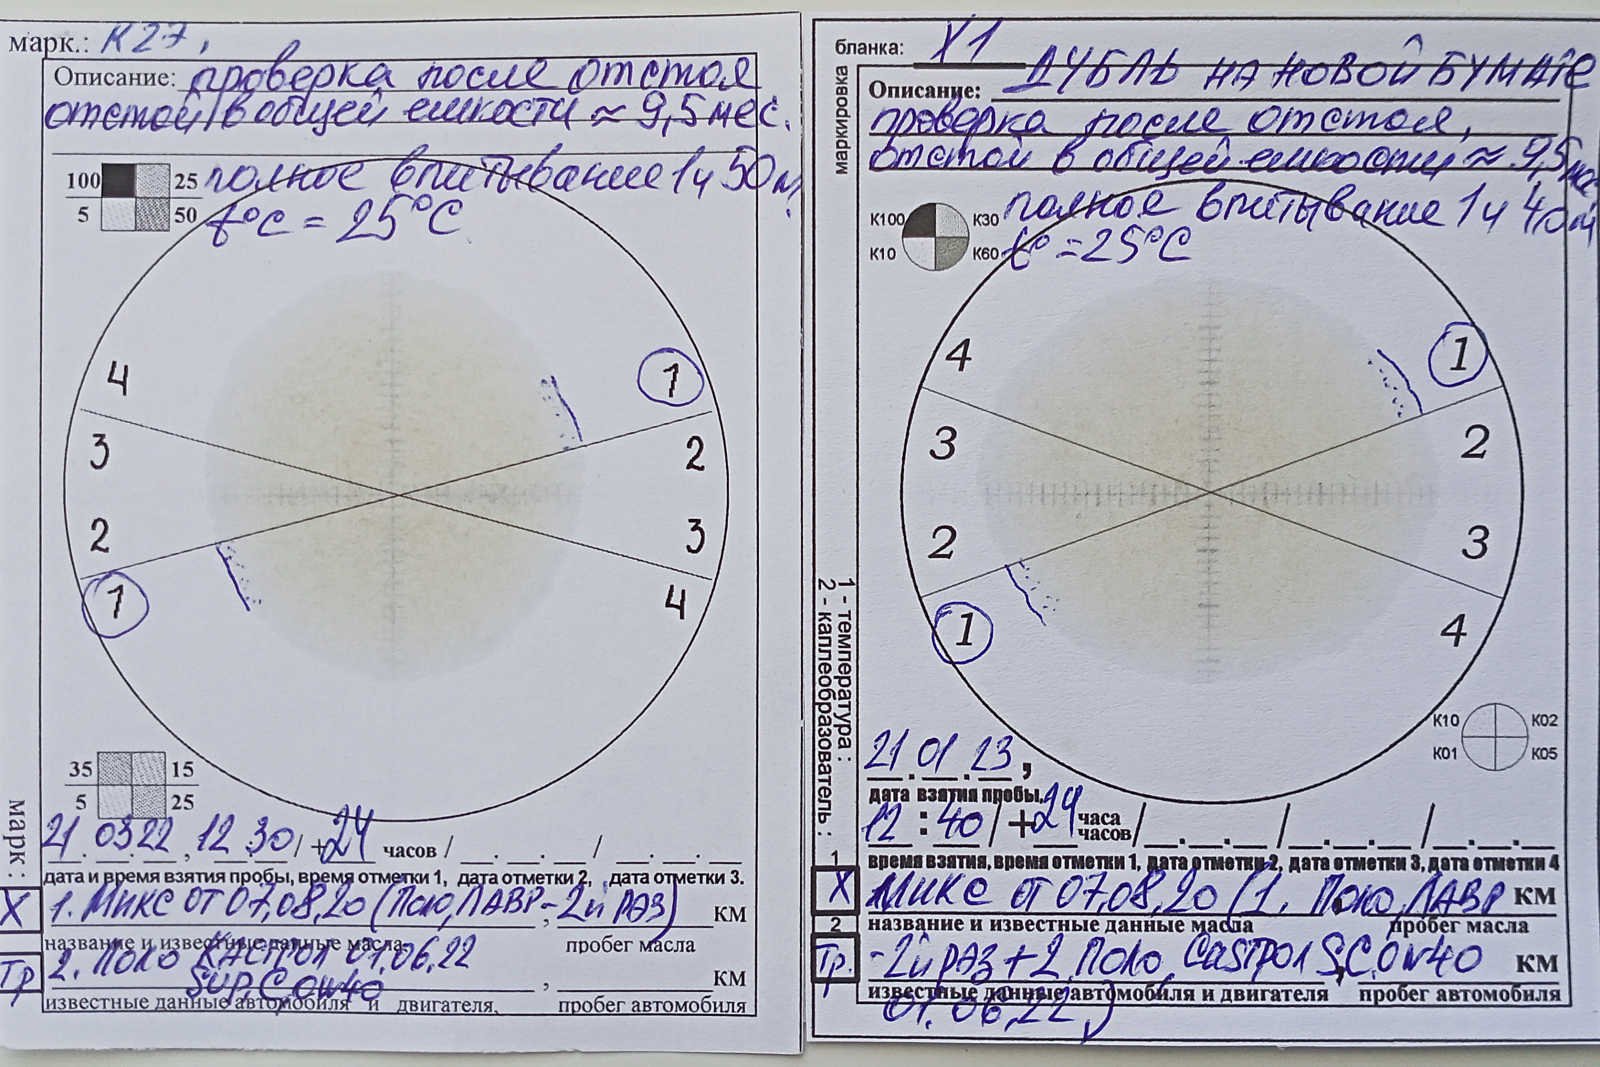 марк.: К27,
Описание: проверка после отстоя
отстой в общей емкости ≈ 9,5 мес.
100 25 полное впитывание 1ч 50м
5 50 t°C = 25°C
4 1
3 2
2 3
1 4
35 15
5 25
марк :
21. 03 22, 12.30/ +24 часов / __.__.__ / __.__.__
дата и время взятия пробы, время отметки 1, дата отметки 2, дата отметки 3.
X 1. Микс от 07,08,20 (Поло, ЛАВР - 2й раз) , КМ
название и известные данные масла пробег масла
Тр 2. Поло Кастрол 01,06,22
SUP,C 0w40 , КМ
известные данные автомобиля и двигателя, пробег автомобиля
бланка: X1
маркировка
ДУБЛЬ НА НОВОЙ БУМАГЕ
Описание:
проверка после отстоя,
отстой в общей емкости ≈ 9,5 мес
К100 К30 полное впитывание 1ч 40м
К10 К60 t° = 25°C
4 1
3 2
2 3
1 4
К10 К02
К01 К05
1 - температура :
2 - каплеобразователь :
21. 01. 23,
дата взятия пробы,
12 : 40/ +24 часа часов/ __.__.__ / __.__.__ / __.__.__
1 время взятия, время отметки 1, дата отметки 2, дата отметки 3, дата отметки 4
X Микс от 07,08,20 (1. Поло, ЛАВР КМ
2 название и известные данные масла пробег масла
Тр. - 2й раз + 2. Поло, Castрол S,C. 0w40 КМ
известные данные автомобиля и двигателя пробег автомобиля
01. 06,22,)